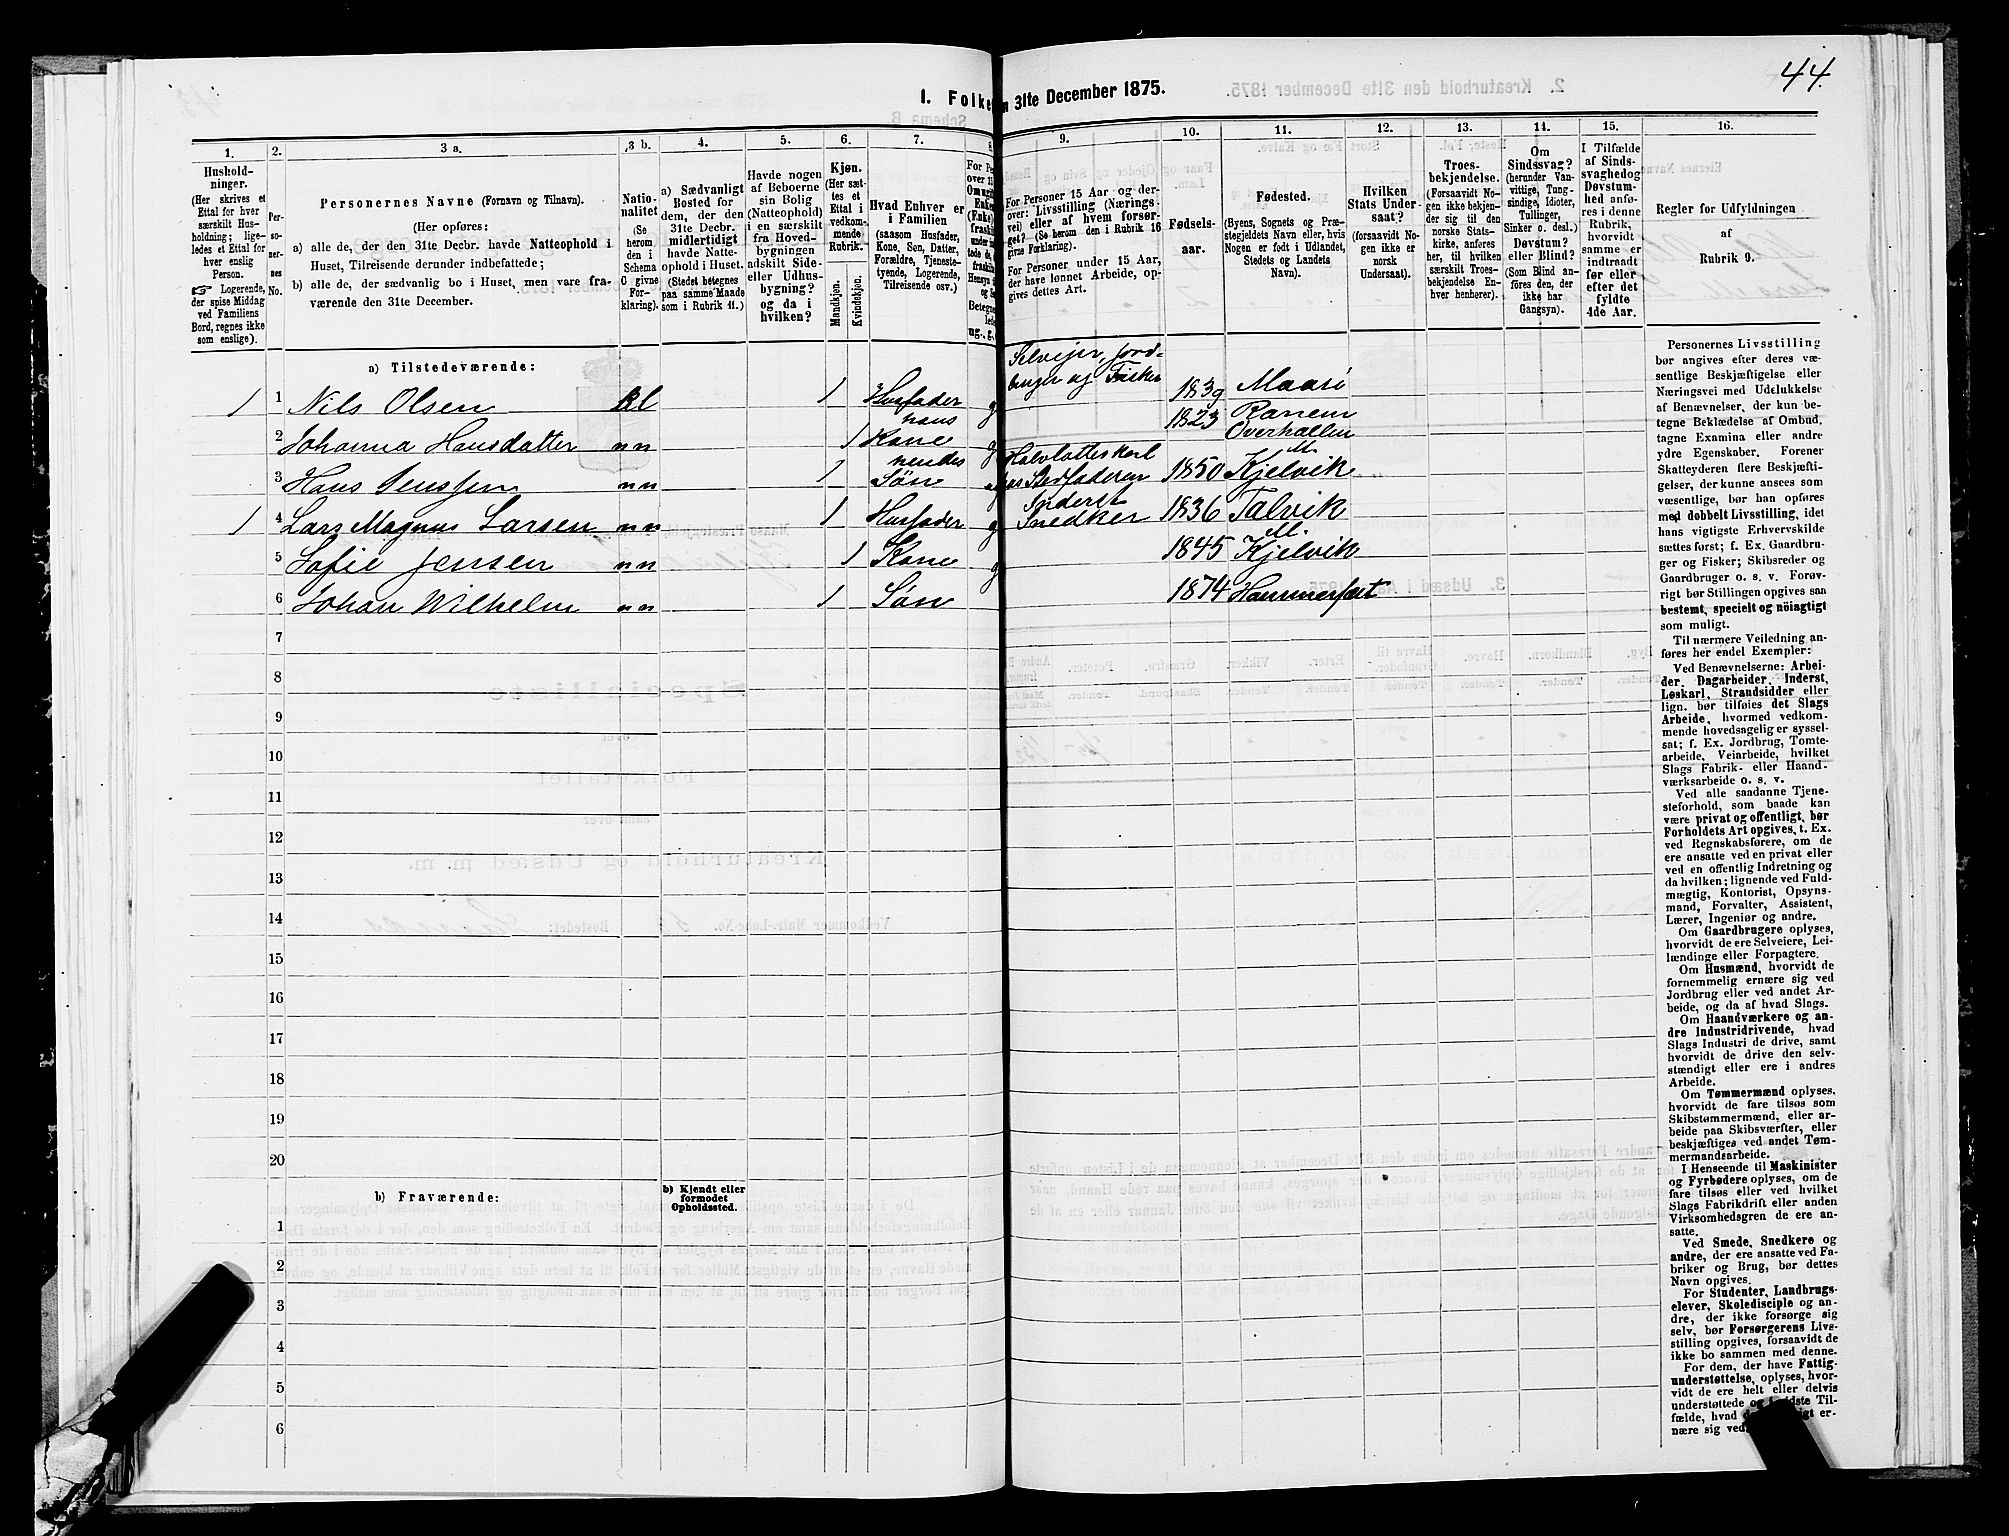 44.
1. Folke
n 31te December 1875.
1.
2.
3 a.
3 b.
4.
5.
6.
7.
8.
9.
10.
11.
12.
13.
14.
15.
16.
Hushold-
ninger.
(Her skrives et
Ettal for hver
særskilt Hus-
holdning; lige-
ledes et Ettal for
hver enslig
Person.
☞ Logerende,
der spise Middag
ved Familiens
Bord, regnes ikke
som enslige).
Per-
so-
ner-
nes
No.
Personernes Navne (Fornavn og Tilnavn).
(Her opføres:
a) alle de, der den 31te Decbr. havde Natteophold i
Huset, Tilreisende derunder indbefattede;
b) alle de, der sædvanlig bo i Huset, men vare fra-
værende den 31te December.
Natio-
nalitet
(Se
herom
den i
Schema
O givne
For-
klaring).
a) Sædvanligt
Bosted for
dem, der den
31te Decbr.
midlertidigt
havde Natte-
ophold i Huset.
(Stedet betegnes
paa samme Maade
som i Rubrik 11.)
Havde nogen
af Beboerne
sin Bolig
(Natteophold)
i en særskilt
fra Hoved-
bygningen
adskilt Side-
eller Udhus-
bygning?
og da i
hvilken?
Kjøn.
(Her sæt-
tes et
Ettal i
vedkom-
mende
Rubrik.
Mandkjøn.
Kvindekjøn.
Hvad Enhver er
i Familien
(saasom Husfader,
Kone, Søn, Datter,
Forældre, Tjeneste-
tyende, Logerende,
Tilreisende osv.)
For Personer 15 Aar og der-
over: Livsstilling (Nærings-
vei) eller af hvem forsør-
get? (Se herom den i Rubrik 16
givne Forklaring).
For Personer under 15 Aar,
der have lønnet Arbeide, op-
gives dettes Art.
Fødsels-
aar.
Fødested.
(Byens, Sognets og Præ-
stegjeldets Navn eller, hvis
Nogen er født i Udlandet,
Stedets og Landets
Navn).
Hvilken
Stats Under-
saat?
(forsaavidt No-
gen ikke er
norsk
Undersaat).
Troes-
bekjendelse.
(Forsaavidt No-
gen ikke bekjen-
der sig til den
norske Stats-
kirke, anføres
her, til hvilken
særskilt Troes-
bekjendelse En-
hver henhører).
Om
Sindssvag?
(herunder Van-
vittige, Tung-
sindige, Idioter,
Tullinger,
Sinker o. desl.)
Døvstum?
eller Blind?
(Som Blind an-
føres den, der
ikke har
Gangsyn).
I Tilfælde
af Sinds-
svaghed og
Døvstum-
hed anfø-
res i denne
Rubrik,
hvorvidt
samme er
indtraadt
før eller
efter det
fyldte
4de Aar.
Regler for Udfyldningen
af
Rubrik 9.
a) Tilstedeværende:
Selveier, jord-
bruger og Fisker
1 1 Nils Olsen Bl 1 Husfader g 1839 Maasö
2 Johanna Hansdatter nn 1 hans Kone g 1823 Ranem Overhallen
3 Hans Jenssen nn 1 hendes Søn 1850 Kjelvik
1 4 Lars Magnus Larsen nn 1 Husfader g Inderst Snedker 1836 Talvik
5 Sofie Jensen nn 1 Kone g 1845 Kjelvik
6 Johan Wilhelm nn 1 Søn 1874 Hammerfest
7
8
9
10
11
12
13
14
15
16
17
18
19
20
b) Fraværende:
b) Kjendt eller
formodet
Opholdssted.
1
2
3
4
5
6
Personernes Livsstilling
bør angives efter deres væ-
sentlige Beskjæftigelse eller
Næringsvei med Udelukkelse
af Benævnelser, der kun be-
tegne Beklædelse af Ombud,
tagne Examina eller andre
ydre Egenskaber. Forener
Skatteyderen flere Beskjæfti-
gelser, der kunne ansees som
væsentlige, bør han opføres
med dobbelt Livsstilling, idet
hans vigtigste Erhvervskilde
sættes først; f. Ex. Gaardbru-
ger og Fisker; Skibsreder og
Gaardbruger o. s. v. Forøv-
rigt bør Stillingen opgives saa
bestemt, specielt og nöiagtigt
som muligt.
Til nærmere Veiledning an-
føres her endel Exempler:
Ved Benævnelserne: Arbei-
der, Dagarbeider, Inderst,
Løskarl, Strandsidder eller
lign. bør tilføies det Slags
Arbeide, hvormed vedkom-
mende hovedsagelig er syssel-
sat; f. Ex. Jordbrug, Tomte-
arbeide, Veiarbeide, hvilket
Slags Fabrik- eller Haand-
værksarbeide o. s. v.
Ved alle saadanne Tjene-
steforhold, som baade kan
være privat og offentligt, bør
Forholdets Art opgives, t. Ex.
ved Regnskabsførere, om de
ere ansatte ved en privat eller
ved en offentlig Indretning og
da hvilken; lignende ved Fuld-
mægtig, Kontorist, Opsyns-
mand, Forvalter, Assistent,
Lærer, Ingeniør og andre.
Om Gaardbrugere oplyses,
hvorvidt de ere Selveiere, Lei-
lændinge eller Forpagtere.
Om Husmænd, hvorvidt de
fornemmelig ernære sig ved
Jordbrug eller ved andet Ar-
beide, og da af hvad Slags.
Om Haandværkere og an-
dre Industridrivende, hvad
Slags Industri de drive, samt
hvorvidt de drive den selv-
stændigt eller ere i andres
Arbeide.
Om Tømmermænd oplyses,
hvorvidt de fare tilsøs som
Skibstømmermænd, eller ar-
beide paa Skibsværfter, eller
beskjæftiges ved andet Tøm-
mermandsarbeide.
I Henseende til Maskinister
og Fyrbødere oplyses, om de
fare tilsøs eller ved hvilket
Slags Fabrikdrift eller anden
Virksomhedsgren de ere an-
satte.
Ved Smede, Snedkere og
andre, der ere ansatte ved Fa-
briker og Brug, bør dettes
Navn opgives.
For Studenter, Landbrugs-
elever, Skoledisciple og an-
dre, der ikke forsørge sig
selv, bør Forsørgerens Livs-
stilling opgives, forsaavidt de
ikke bo sammen med denne.
For dem, der have Fattig-
understøttelse, oplyses, hvor-
vidt de ere helt eller delvis
understøttede